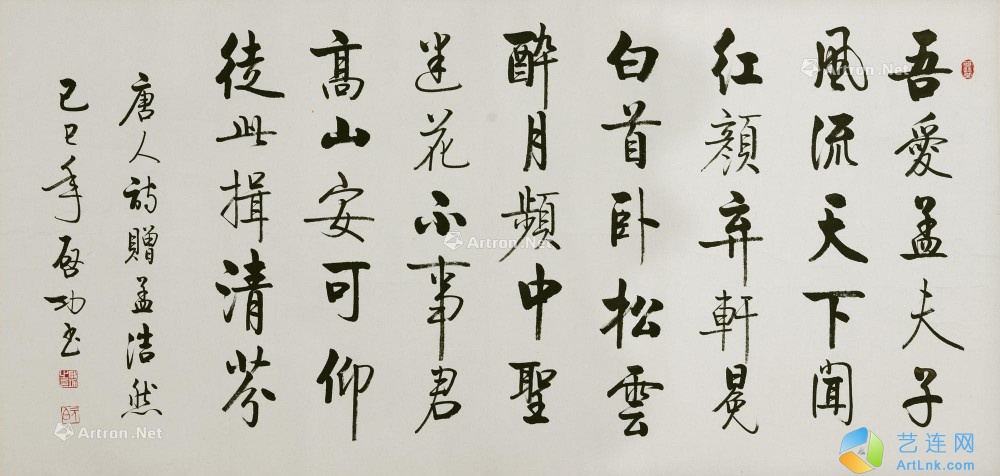 吾愛孟夫子
風流天下聞
紅顏弃軒冕
白首卧松雲
醉月頻中聖
迷花不事君
髙山安可仰
徒此揖清芬
唐人詩贈孟浩然
己巳年啓功书
Artron.Net
Artron.Net
Artron.Net
Artron.Net
Artron.Net
艺连网
ArtLnk.com